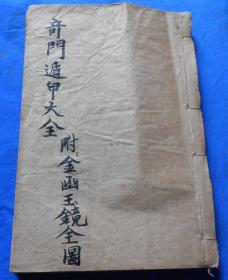 奇門遁甲大全
附金函玉鏡全圖